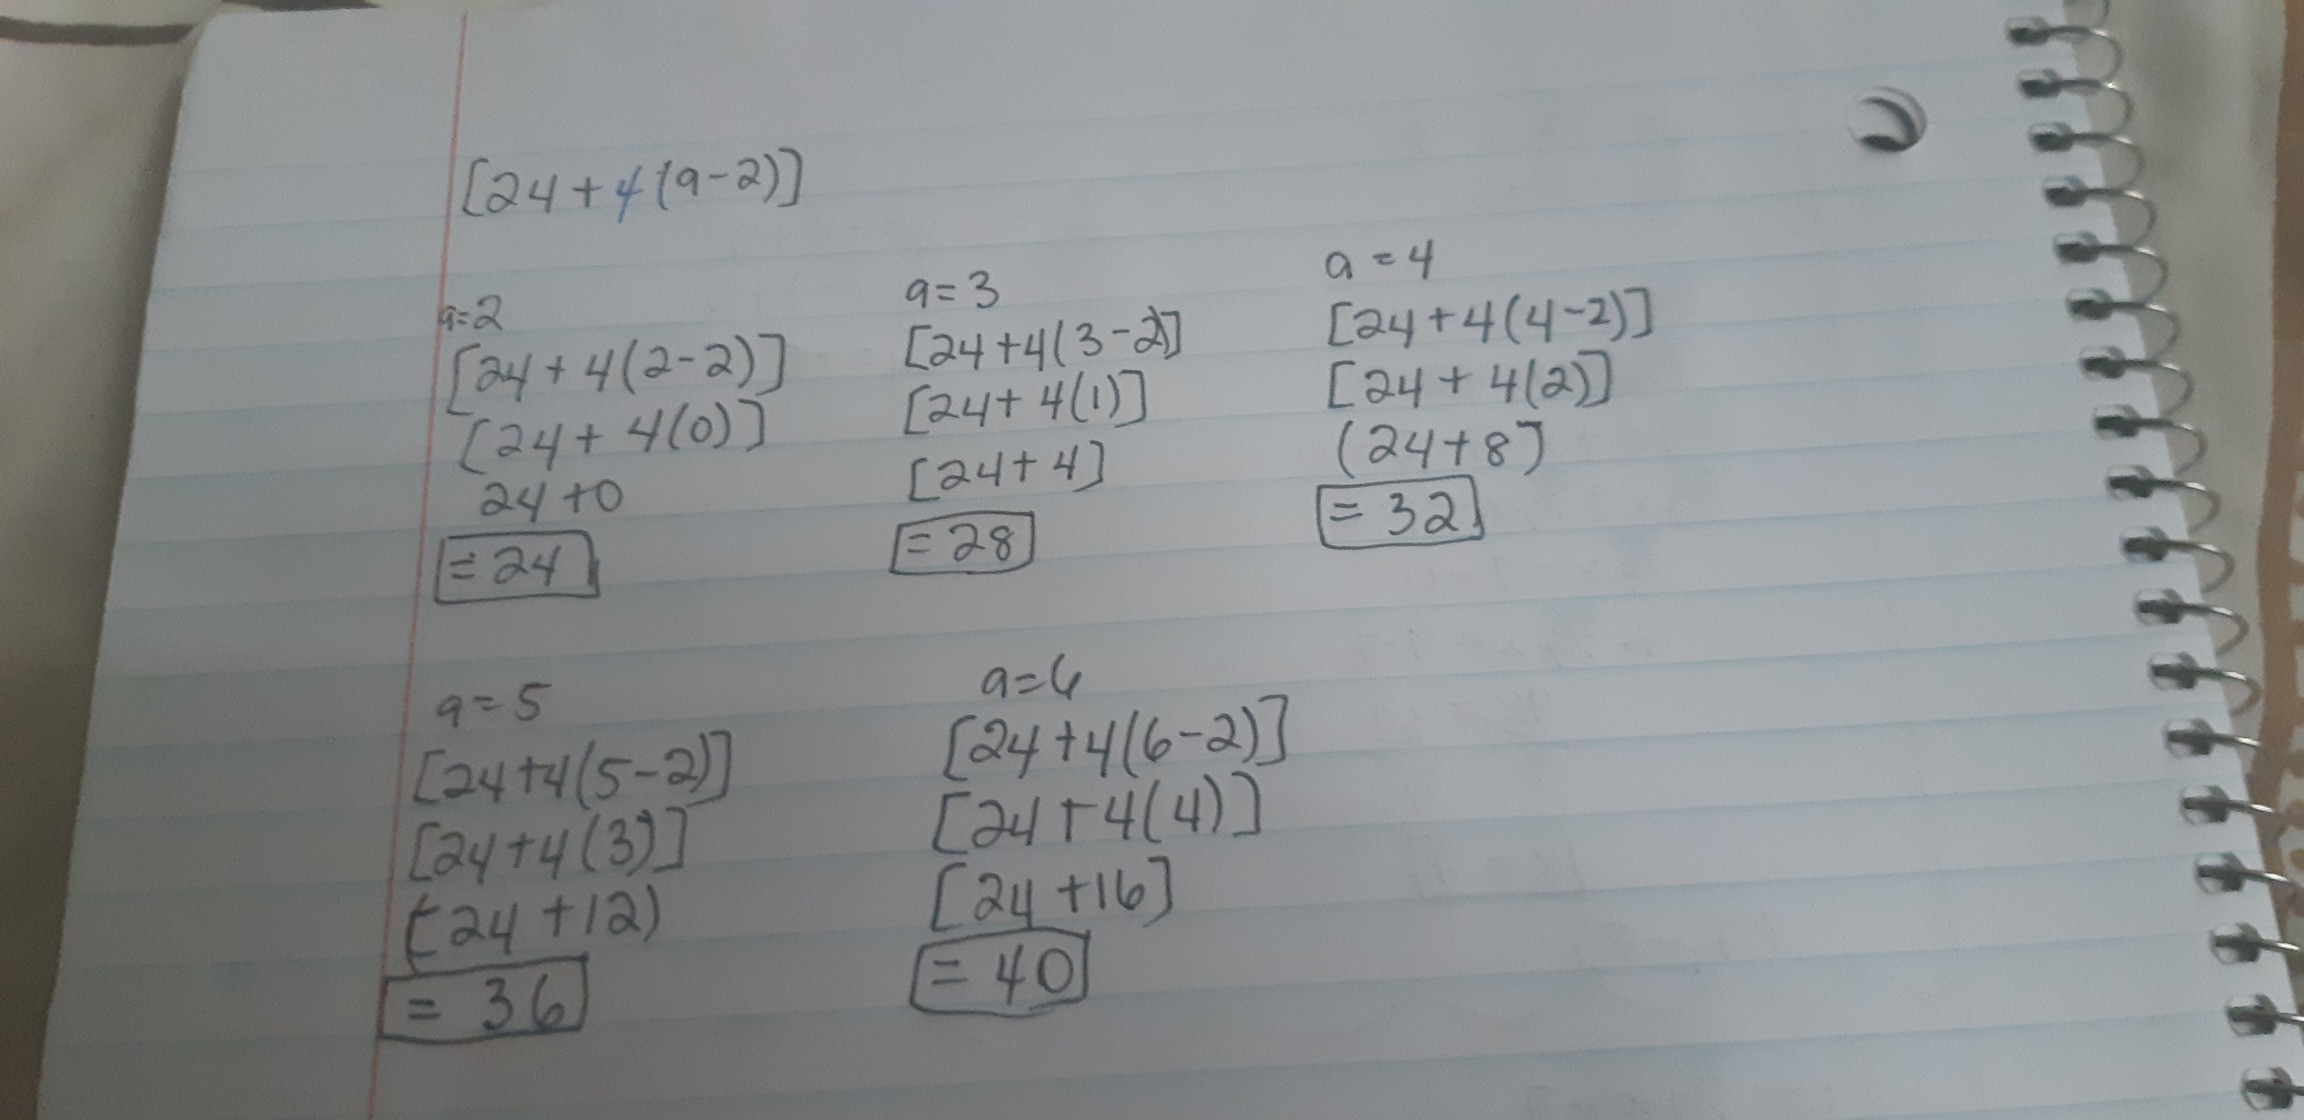 [24+4(a-2)]
a=2
[24+4(2-2)]
[24+4(0)]
24+0
=24
a=3
[24+4(3-2)]
[24+4(1)]
[24+4]
=28
a=4
[24+4(4-2)]
[24+4(2)]
(24+8]
=32
a=5
[24+4(5-2)]
[24+4(3)]
(24+12)
=36
a=6
[24+4(6-2)]
[24+4(4)]
[24+16]
=40